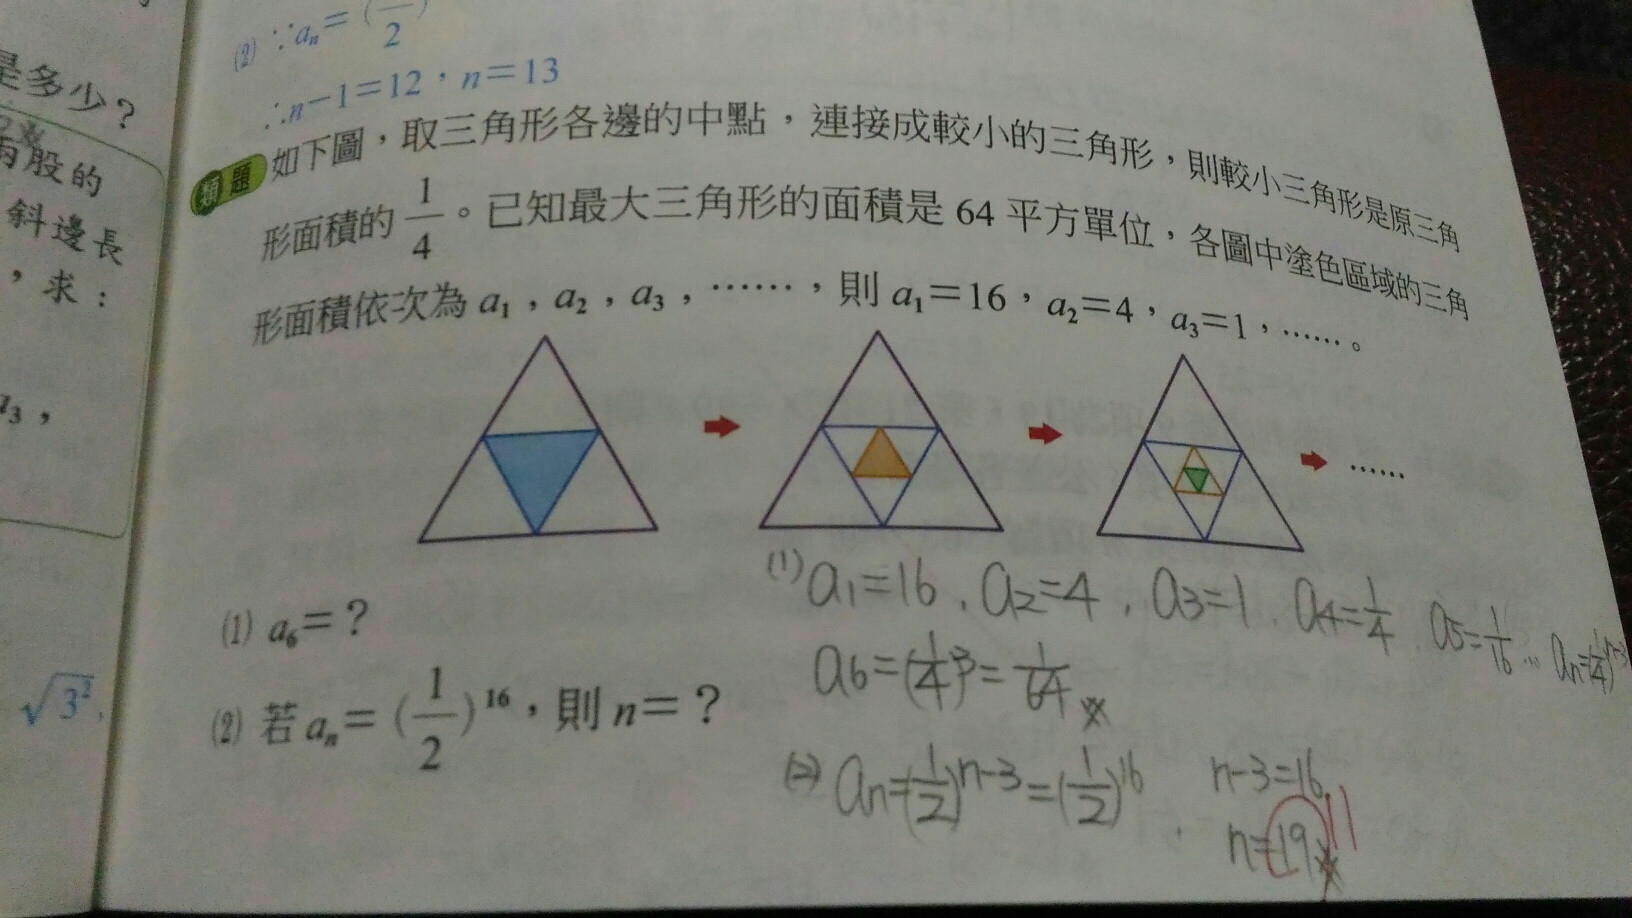 (2) ∵aₙ=( /2)
∴n-1=12,n=13
是多少?
兩股的
斜邊長
,求:
a₃,
√3²,
類題 如下圖,取三角形各邊的中點,連接成較小的三角形,則較小三角形是原三角
形面積的 1/4。已知最大三角形的面積是 64 平方單位,各圖中塗色區域的三角
形面積依次為 a₁,a₂,a₃,……,則 a₁=16,a₂=4,a₃=1,……。
……
(1) a₆=?
(2) 若 aₙ=(1/2)¹⁶,則 n=?
(1) a₁=16, a₂=4, a₃=1, a₄=1/4, a₅=1/16 … aₙ=(1/4)ⁿ⁻³
a₆=(1/4)³=1/64
(2) aₙ=(1/2)ⁿ⁻³=(1/2)¹⁶, n-3=16
n=19 11